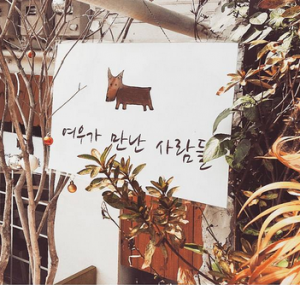 여우가 만난 사람들